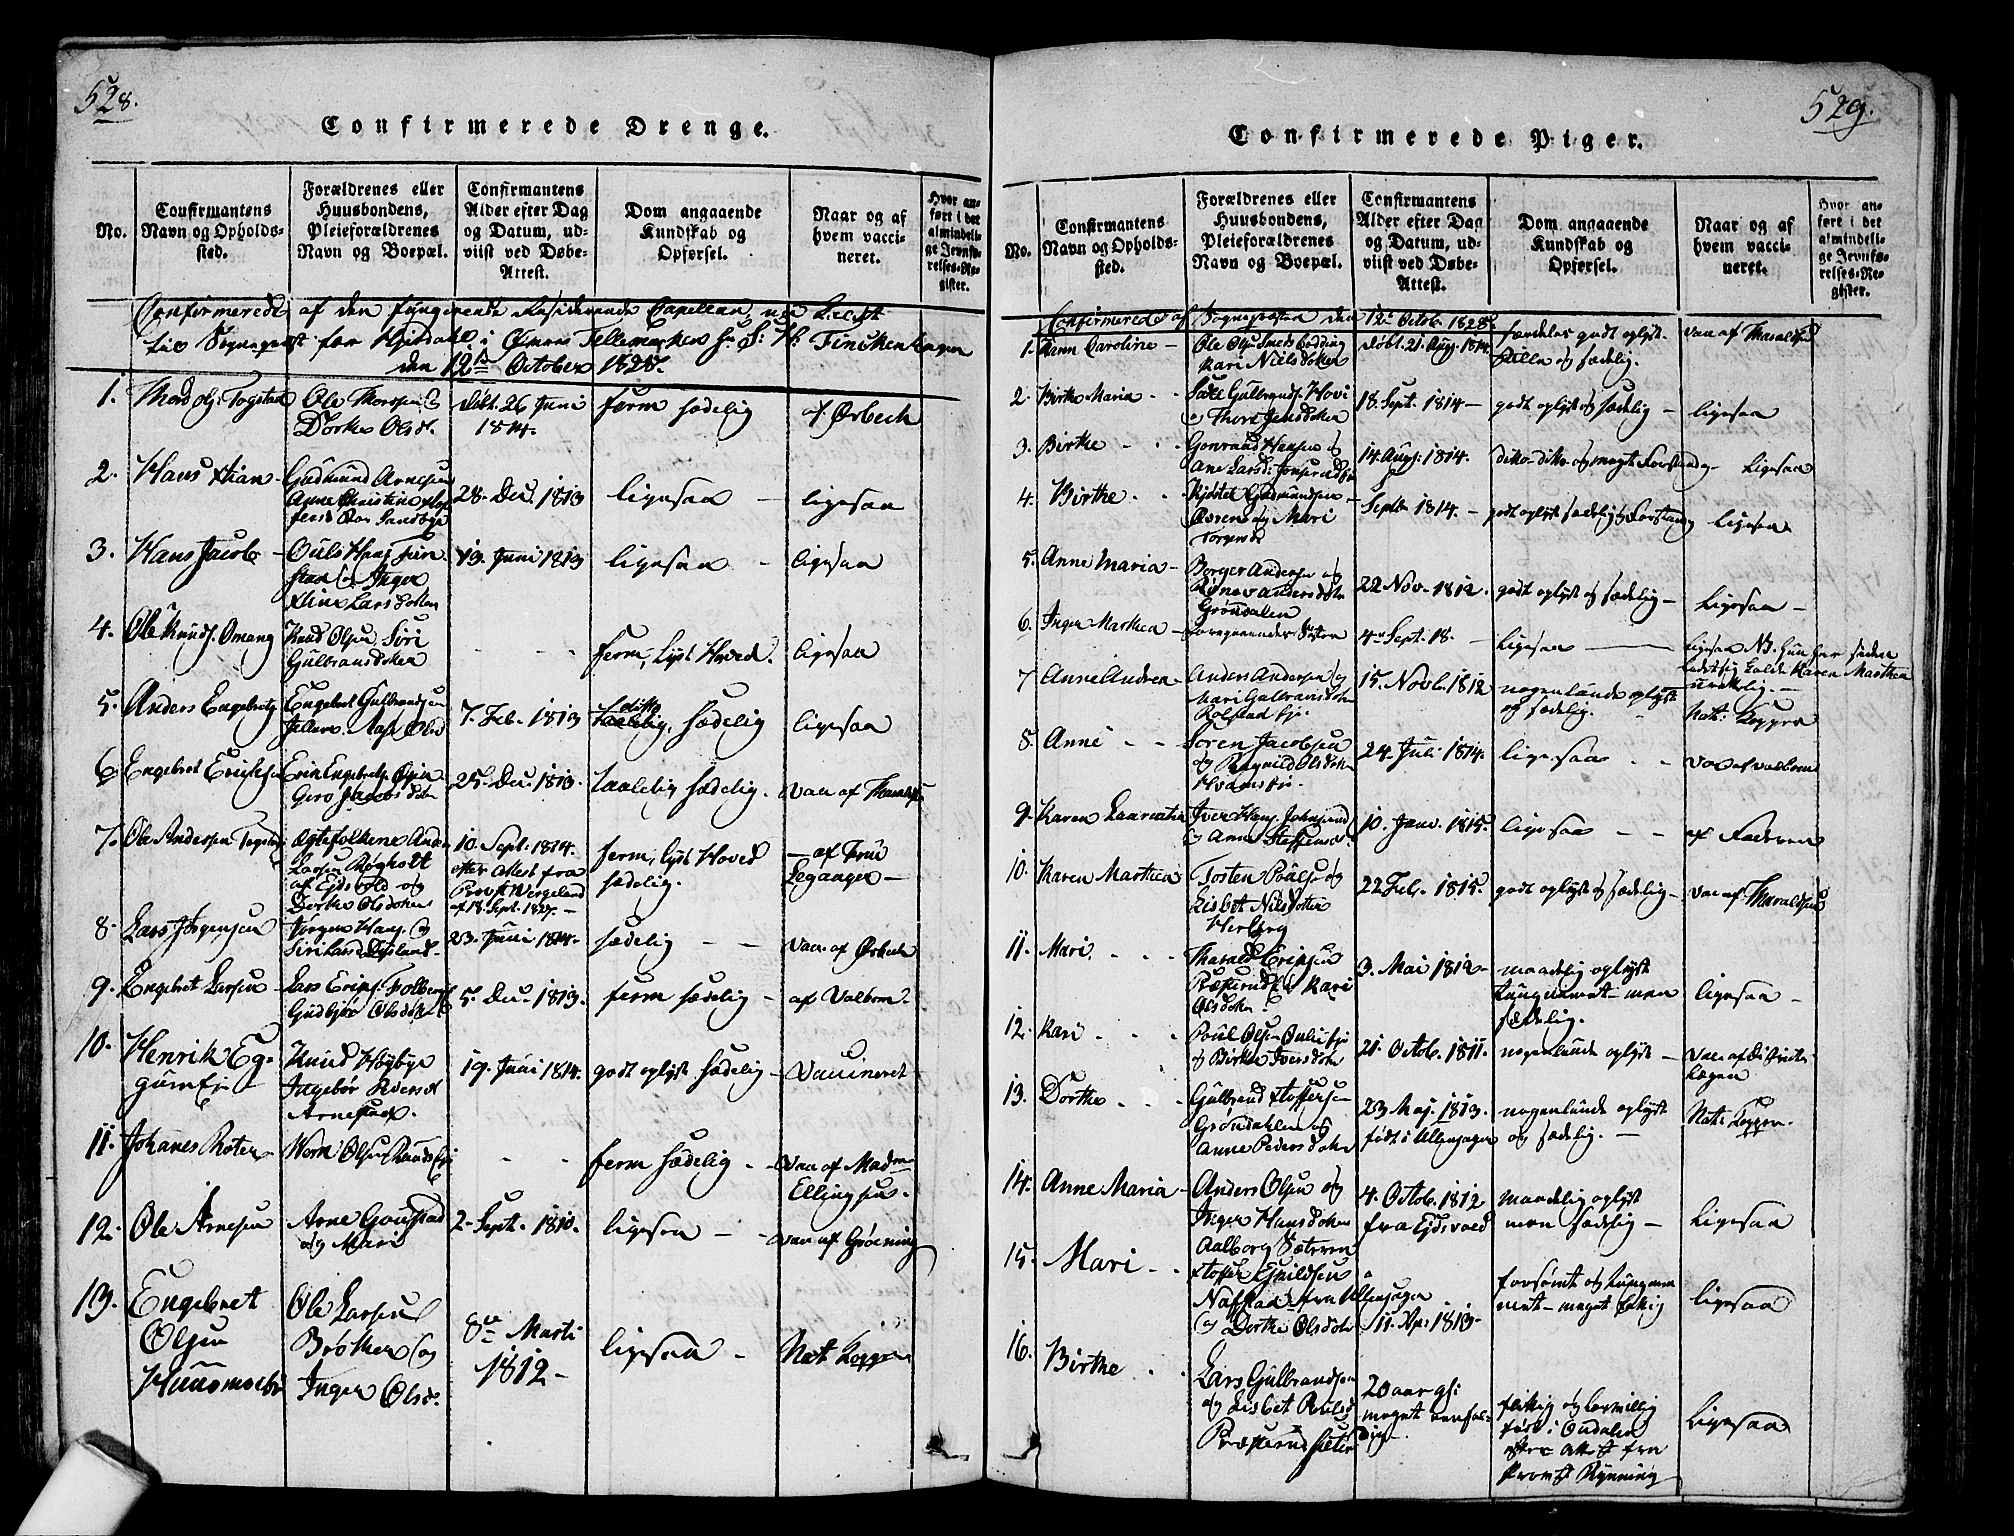 528.
Confirmerede Drenge.
No.
Confirmantens Navn og Opholds-sted.
Forældrenes eller Huusbondens, Pleieforældrenes Navn og Boepæl.
Confirmantens Alder efter Dag og Datum, ud-viist ved Døbe-Attest.
Dom angaaende Kundskab og Opførsel.
Naar og af hvem vacci-neret.
Hvor an-ført i det almindeli-ge Jevnfø-relses-Re-gister.
Confirmerede af den fungerende Residerende Capellan,
Sognepræst for Hjerdahl i Øvres Tellemarken
den 12te October 1828.
1. Ole Thorsen og Dorthe Olsd. døbt. 26 Juni 1814. ferm sædelig af Ørbech
2. Hans Gudmund Arnesen Anne Christine 28. Dec. 1813 ligesaa - ligesaa
3. Hans Jacob og Inger Larsdotter 19. Juni 1813 ligesaa - ligesaa
4. Ole Knuds. Omang Knud Olsen Siri Gulbrandsdotter - - ferm, lyst Hoved. ligesaa
5. Anders Engebrets. Engebret Gulbrandsen 7. Feb. 1813 ditto sædelig ligesaa
6. Engebret Ericksen Jacobsdotter 25. Dec. 1813. taalelig sædelig. Vac af
7. Ole Andersen af Eidsvold og Dorthe Olsdotter 10. Sept. 1814. efter Attest fra Provst Wergeland af 18. Sept. 1827. - ferm, lyst Hoved sædelig. - af Frue Leganger -
8. Lars Jørgensen Jørgen Hans. og Siri Larsd. 23. Juni 1814. sædelig - - Vac. af Ørbech
9. Engebret Larsen Lars Erics. Gudbjør Olsdotter 5. Dec. 1813. ferm sædelig - af Valborn.
10. Henrik Knud Høybye Ingebør 19. Juni 1814. godt oplyst sædelig - Vaccineret
11. Johanes - - ferm sædelig - Vac af Madme Ellingsen.
12. Ole Arnesen Arne og Mari 2. Sept. 1810. ligesaa - - Vac af Grøening
13. Engebret Olsen Ole Larsen Brøther og Inger Olsd. 8de Marti 1812 - ligesaa - Nat Kopper
529.
Confirmerede Piger.
No.
Confirmantens Navn og Opholds-sted.
Forældrenes eller Huusbondens, Pleieforældrenes Navn og Boepæl.
Confirmantens Alder efter Dag og Datum, ud-viist ved Døbe-Attest.
Dom angaaende Kundskab og Opførsel.
Naar og af hvem vacci-neret.
Hvor an-ført i det almindeli-ge Jevnfø-relses-Re-gister.
Confirmerede af Sognepræsten den 12te Octob. 1828.
1. Caroline - Ole Kari Nielsdotter døbt. 21. Aug. 1814. særdeles godt oplyst og sædelig. vac af Tharaldsen
2. Birthe Maria Gulbrands. Hovi og Thore Jensdotter 18. Sept. 1814 - godt oplyst og sædelig - ligesaa
3. Birthe Hansen og Ane Larsd. 14 Aug. 1814. dito - dito - og megt Forstandg. ligesaa
4. Birthe Gudmundsen og Mari Sept. 1814. - godt oplyst sædelig og Forstandg ligesaa
5. Anne Maria - Børger Andersen og Andersdotter Grøndalen 22 Nov. 1812. godt oplyst og sædelig - ligesaa -
6. Inger Marthea - Foregaaendes Søster 4de Sept. 18. - ligesaa - ligesaa NB. hun har siden ladet sig kalde Karen Marthea
7 Anne Andrea - Anders Andersen og Mari Gulbrandsdotter Rolstad Eje. 15. Novb. 1812 nogenlunde oplyst og sædelig. - Nat. Kopper
8. Anne - - Søren Jacobsen og Ragnild Olsdotter 24. Juli 1814. ligesaa - - vac af valborn
9. Karen Laurentia Iver Hans. og Anne Steffensd. 10. Janv. 1815. ligesaa - - af Faderen
10. Karen Marthea Tosten Poulsen og Lisbet Nilsdotter Herberg 22 Feb. 1815. godt oplyst og sædelig - Vac af Tharaldsen
11. Mari. - - Tharald Ericksen og Kari Olsdotter. 3. Mai 1812 - maadelig oplyst tungnemmet - men sædelig. ligesaa -
12. Kari - - Poul Olsen og Birthe Iversdotter 21. Octob. 1811. nogenlunde oplyst - Vac. af Districts Lægen
13. Dorthe - - Gulbrand Stoffersen Grøndahlen og Anne Pedersdotter 23 Maj. 1813. født i Ullensager nogenlunde oplyst og sædelig. - Nat: Kopper.
14. Anne Maria - Anders Olsen og Inger Hansdotter Aalborg Sæteren 4. Octob. 1812 fra Ejdsvold maadelig oplyst men sædelig - ligesaa
15. Mari - - Stoffer Nafstad fra Ullensager og Dorthe Olsdotter 11. Apr. 1813 - forsømt og tungnemmet - meget flittig ligesaa
16. Birthe - - Lars Gulbrandsen og Lisbet Poulsd 20 aar gl: meget eenfoldig. flittig og født i Oudalen efter Attest fra Provst Rynning ligesaa